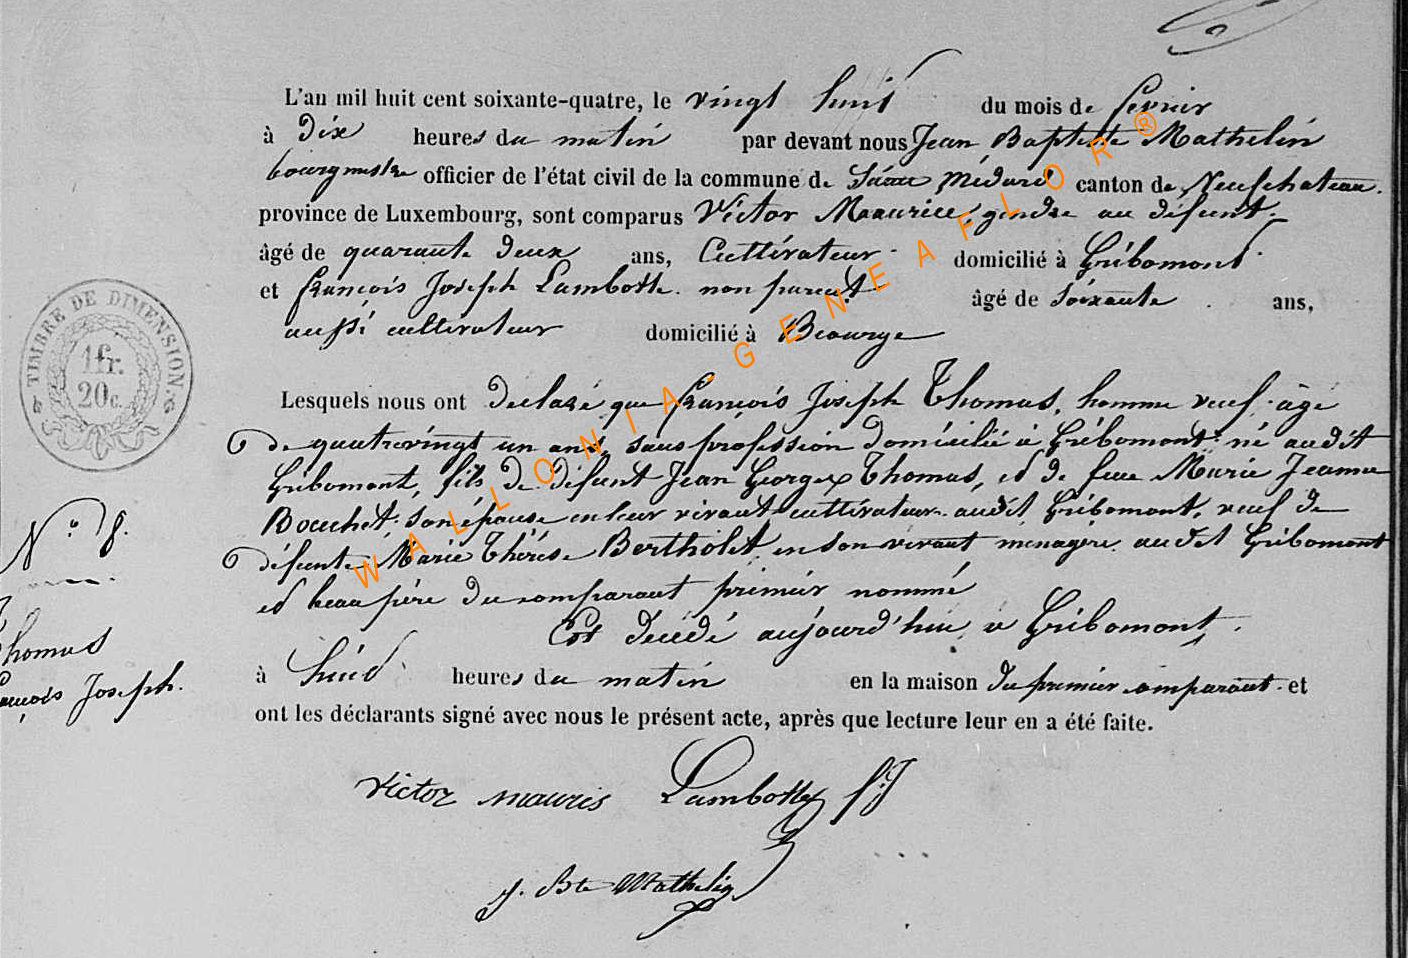 L'an mil huit cent soixante-quatre, le vingt huit du mois de fevrier
à Dix heures du matin par devant nous Jean Baptiste Mathelin
bourgmestre officier de l'état civil de la commune de Saint Médard canton de Neufchateau.
province de Luxembourg, sont comparus Victor Maaurice, gendre au défunt.
âgé de quarante deux ans, Cultivateur domicilié à Gribomont
et françois Joseph Lambotte. non parent âgé de soixante ans,
aussi cultivateur domicilié à
Lesquels nous ont déclaré que françois Joseph Thomas, homme veuf âgé
de quatrevingt un ans, sans profession domicilié à Gribomont né audit
Gribomont, fils de défunt Jean Georges Thomas, et de feue Marie Jeanne
Bouchet son épouse en leur vivant cultivateurs audit Gribomont, veuf de
défunte Marie Thérèse Bertholet en son vivant ménagère audit Gribomont
et beau père du comparant premier nommé
Est décédé aujourd'hui à Gribomont.
à huit heures du matin en la maison du premier comparant. et
ont les déclarants signé avec nous le présent acte, après que lecture leur en a été faite.
TIMBRE DE DIMENSION
1fr.
20c.
N° 8.
Thomas
françois Joseph.
victor mauris Lambotte f J
J. Bte Mathelin
WALLONIA-GENEAFLOR®